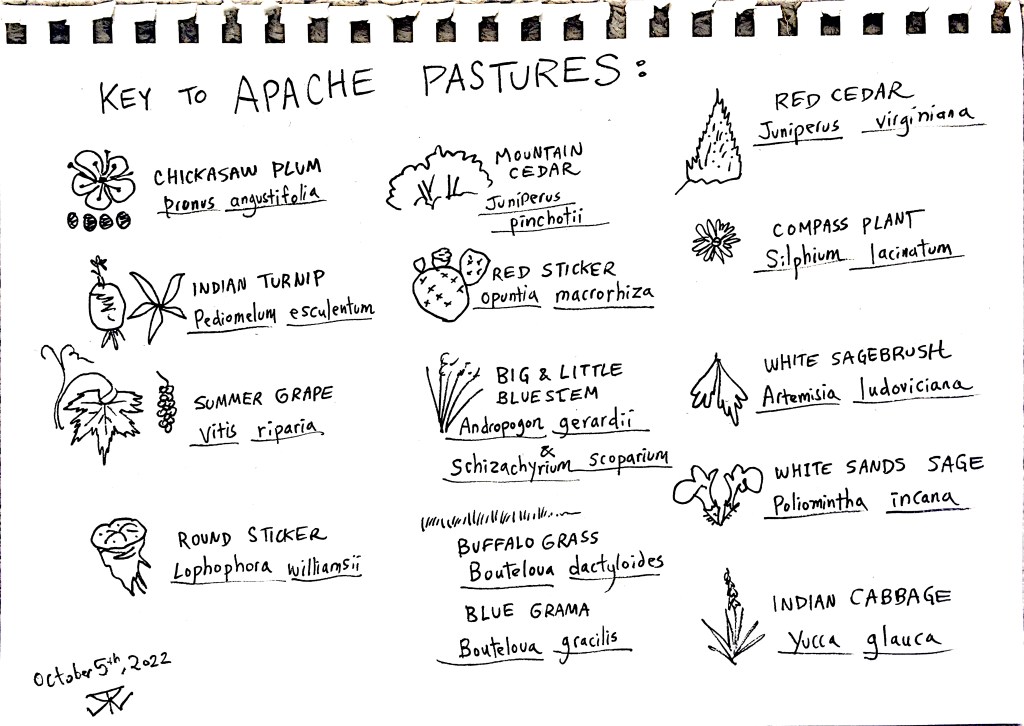 KEY TO APACHE PASTURES:
CHICKASAW PLUM
prunus angustifolia
INDIAN TURNIP
Pediomelum esculentum
SUMMER GRAPE
Vitis riparia
ROUND STICKER
Lophophora williamsii
October 5th, 2022
MOUNTAIN
CEDAR
Juniperus
pinchotii
RED STICKER
opuntia macrorhiza
BIG & LITTLE
BLUESTEM
Andropogon gerardii
&
Schizachyrium scoparium
BUFFALO GRASS
Bouteloua dactyloides
BLUE GRAMA
Bouteloua gracilis
RED CEDAR
Juniperus virginiana
COMPASS PLANT
Silphium lacinatum
WHITE SAGEBRUSH
Artemisia ludoviciana
WHITE SANDS SAGE
Poliomintha incana
INDIAN CABBAGE
Yucca glauca